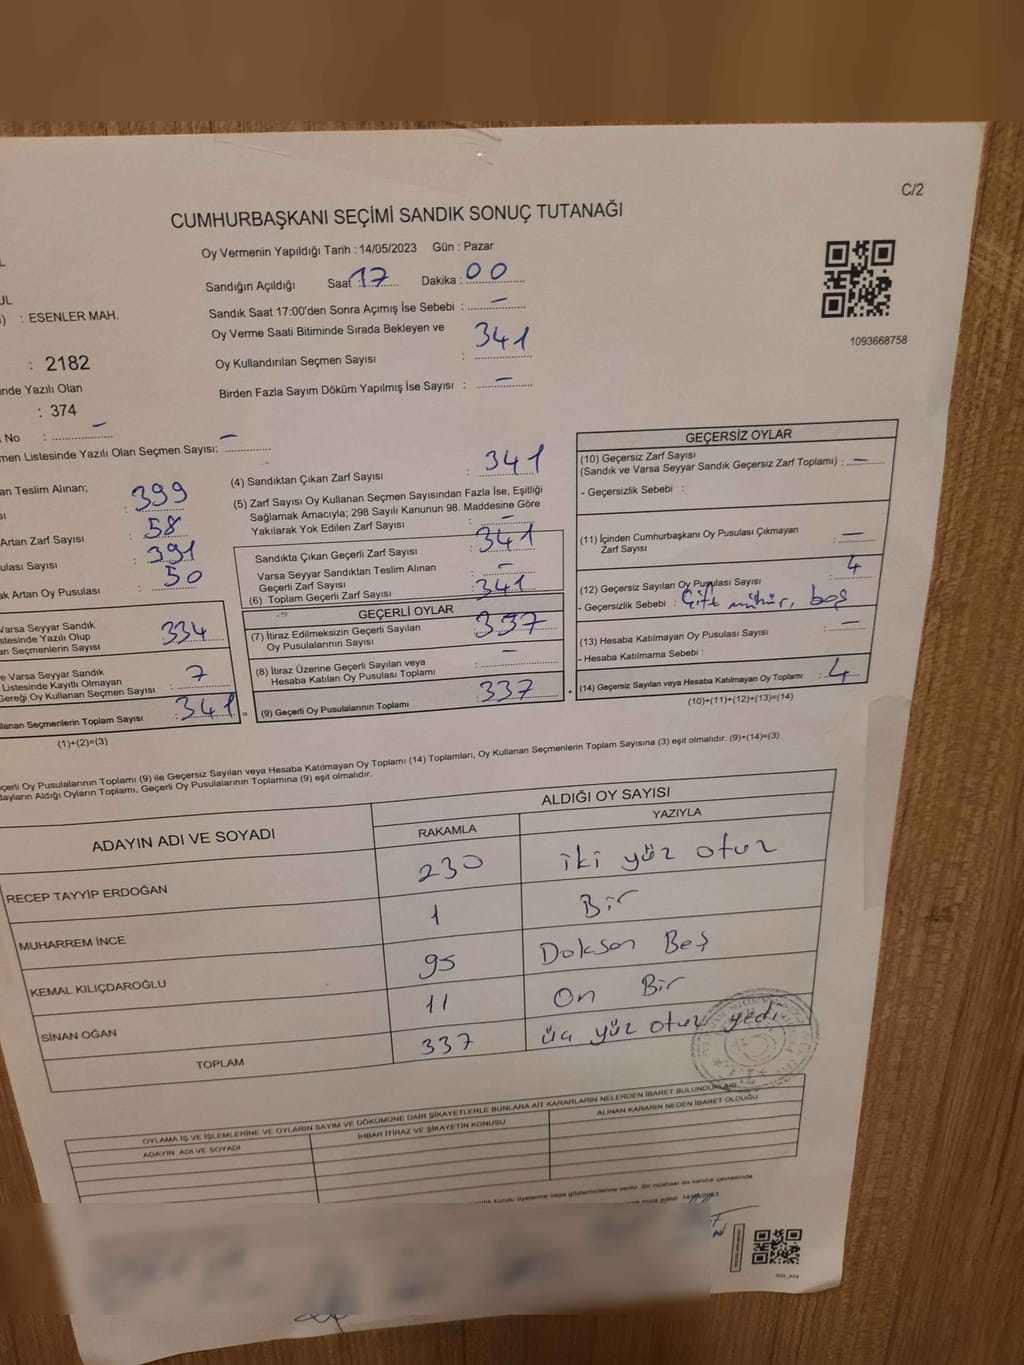 C/2
CUMHURBAŞKANI SEÇİMİ SANDIK SONUÇ TUTANAĞI
Oy Vermenin Yapıldığı Tarih : 14/05/2023 Gün : Pazar
Sandığın Açıldığı Saat 17 Dakika : 00
Sandık Saat 17:00'den Sonra Açımış İse Sebebi : —
Oy Verme Saati Bitiminde Sırada Bekleyen ve
Oy Kullandırılan Seçmen Sayısı : 341
Birden Fazla Sayım Döküm Yapılmış İse Sayısı : —
1093668758
: ESENLER MAH.
: 2182
nde Yazılı Olan
: 374
No : —
men Listesinde Yazılı Olan Seçmen Sayısı: —
an Teslim Alınan;
: 399
Artan Zarf Sayısı : 58
ulası Sayısı : 391
ak Artan Oy Pusulası : 50
Varsa Seyyar Sandık
stesinde Yazılı Olup
an Seçmenlerin Sayısı : 334
e Varsa Seyyar Sandık
Listesinde Kayıtlı Olmayan
Gereği Oy Kullanan Seçmen Sayısı : 7
llanan Seçmenlerin Toplam Sayısı : 341 =
(1)+(2)=(3)
(4) Sandıktan Çıkan Zarf Sayısı : 341
(5) Zarf Sayısı Oy Kullanan Seçmen Sayısından Fazla İse, Eşitliği
Sağlamak Amacıyla; 298 Sayılı Kanunun 98. Maddesine Göre
Yakılarak Yok Edilen Zarf Sayısı : —
Sandıkta Çıkan Geçerli Zarf Sayısı : 341
Varsa Seyyar Sandıktan Teslim Alınan
Geçerli Zarf Sayısı : —
(6) Toplam Geçerli Zarf Sayısı : 341
GEÇERLİ OYLAR
(7) İtiraz Edilmeksizin Geçerli Sayılan
Oy Pusulalarının Sayısı : 337
(8) İtiraz Üzerine Geçerli Sayılan veya
Hesaba Katılan Oy Pusulası Toplamı : —
(9) Geçerli Oy Pusulalarının Toplamı : 337 +
GEÇERSİZ OYLAR
(10) Geçersiz Zarf Sayısı
(Sandık ve Varsa Seyyar Sandık Geçersiz Zarf Toplamı) : —
- Geçersizlik Sebebi :
(11) İçinden Cumhurbaşkanı Oy Pusulası Çıkmayan
Zarf Sayısı : —
(12) Geçersiz Sayılan Oy Pusulası Sayısı : 4
- Geçersizlik Sebebi : Çift mühür, boş
(13) Hesaba Katılmayan Oy Pusulası Sayısı : —
- Hesaba Katılmama Sebebi :
(14) Geçersiz Sayılan veya Hesaba Katılmayan Oy Toplamı : 4
(10)+(11)+(12)+(13)=(14)
çerli Oy Pusulalarının Toplamı (9) ile Geçersiz Sayılan veya Hesaba Katılmayan Oy Toplamı (14) Toplamları, Oy Kullanan Seçmenlerin Toplam Sayısına (3) eşit olmalıdır. (9)+(14)=(3)
dayların Aldığı Oyların Toplamı, Geçerli Oy Pusulalarının Toplamına (9) eşit olmalıdır.
ADAYIN ADI VE SOYADI ALDIĞI OY SAYISI
RAKAMLA YAZIYLA
RECEP TAYYİP ERDOĞAN 230 iki yüz otuz
MUHARREM İNCE 1 Bir
KEMAL KILIÇDAROĞLU 95 Doksan Beş
SİNAN OĞAN 11 On Bir
TOPLAM 337 üç yüz otuz yedi
OYLAMA İŞ VE İŞLEMLERİNE VE OYLARIN SAYIM VE DÖKÜMÜNE DAİR ŞİKAYETLERLE BUNLARA AİT KARARLARIN NELERDEN İBARET BULUNDUKLARI
ADAYIN ADI VE SOYADI İHBAR İTİRAZ VE ŞİKAYETİN KONUSU ALINAN KARARIN NEDEN İBARET OLDUĞU